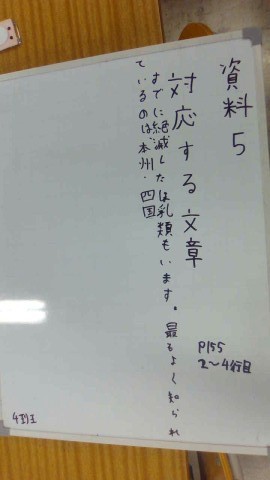 資料5
対応する文章
すでに絶滅したほ乳類もいます。最もよく知られ
ているのは、本州・四国
P155
2〜4行目
4班